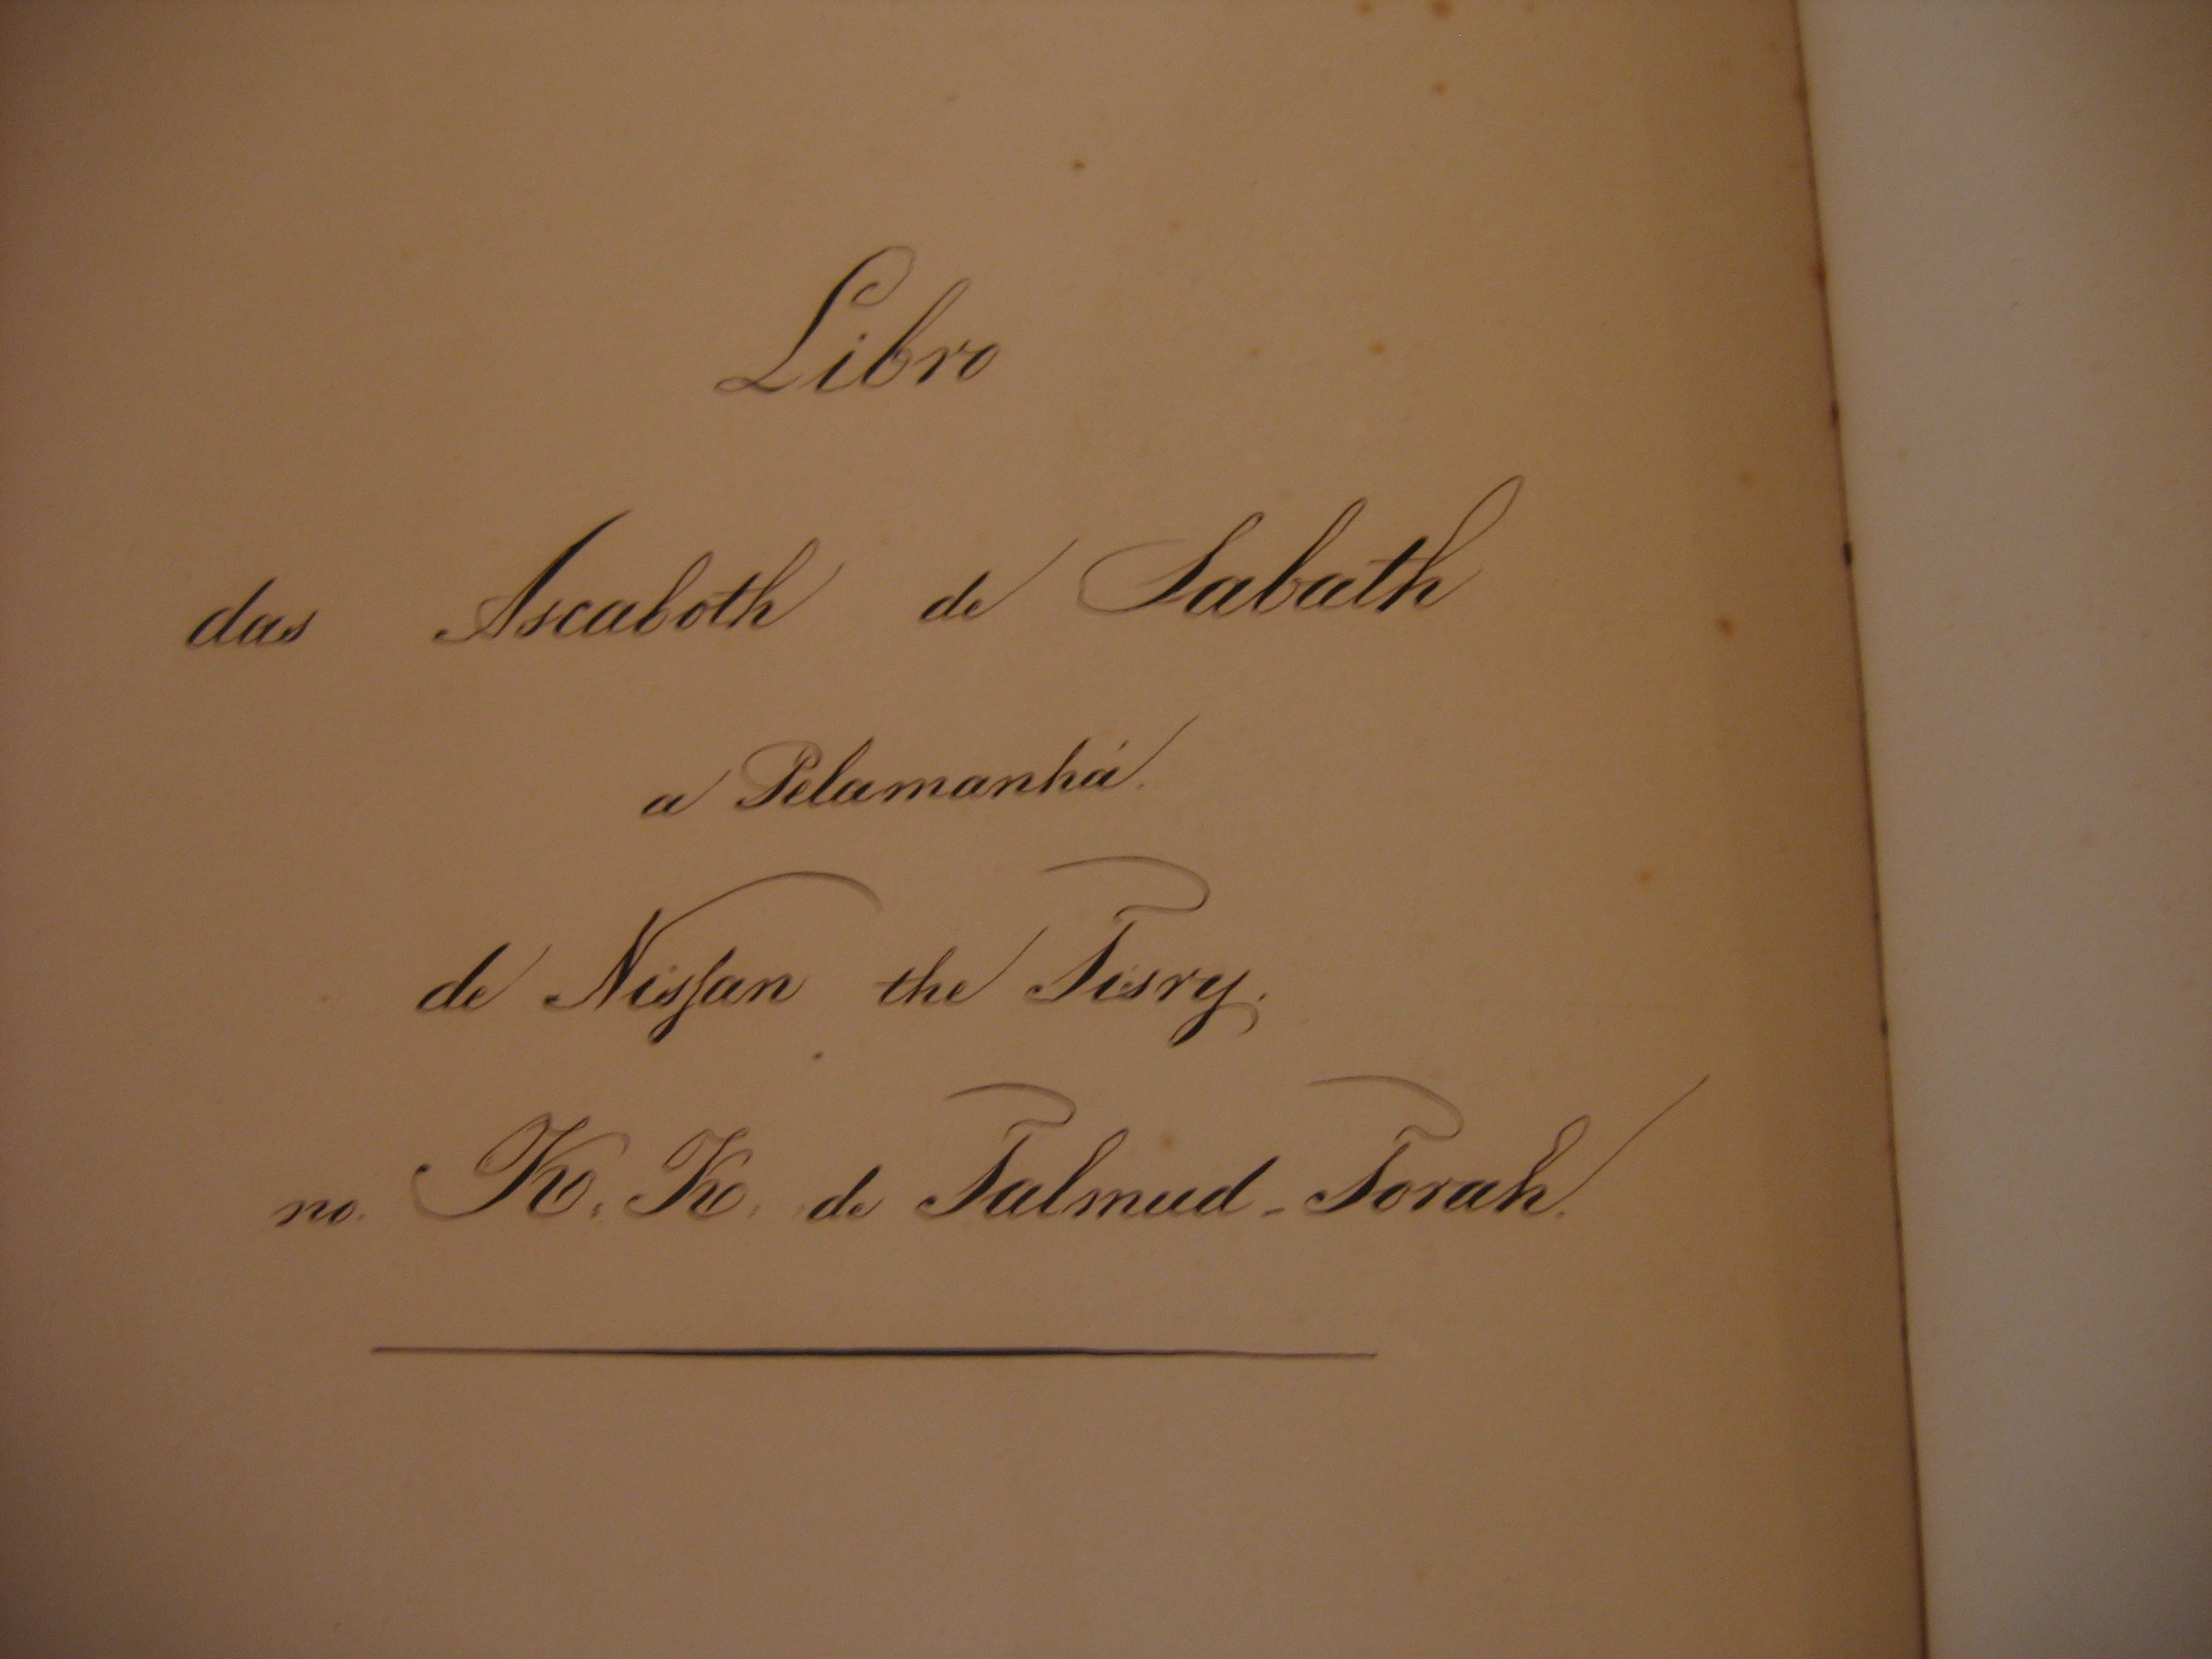 Libro
das Ascaboth de Sabath
a Pelamanhá.
de Nisſan the Tisry.
no. K. K. de Talmud-Torah.